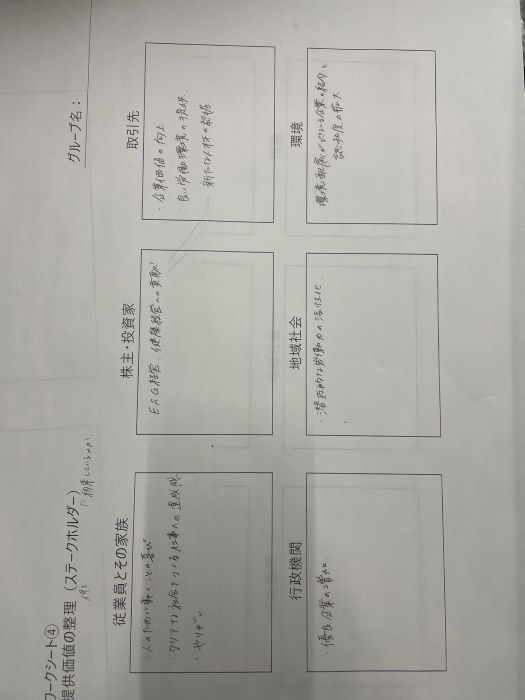 ワークシート④
提供価値の整理（ステークホルダー）
何を
に約束しているのか
グループ名：
従業員とその家族
・人のために動くことの喜び
・クリアな社会をつくる仕事への達成感
・やりがい
株主・投資家
ESG経営、健康経営への貢献
取引先
・企業価値の向上
・良い労働環境の提供
新たな人材の発掘
行政機関
・優良企業の増加
地域社会
・潜在的な労働力の活性化
環境
環境配慮ができている企業の紹介と
認知度の拡大